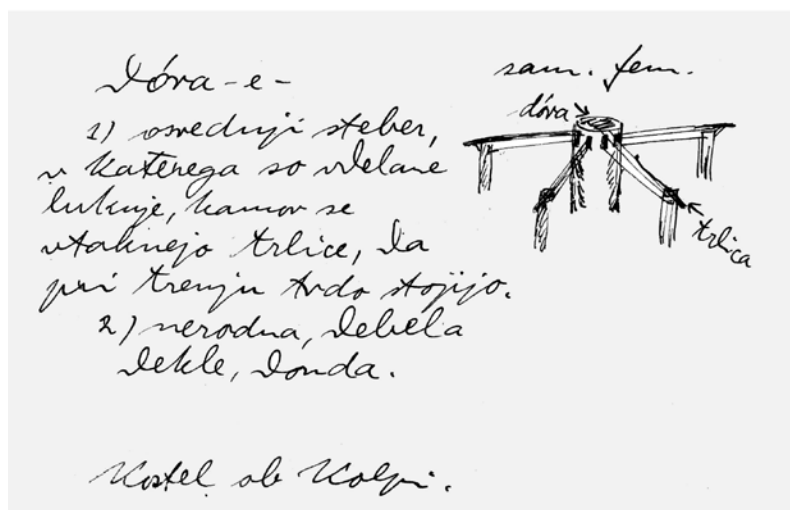 Dóra -e- sam. fem.
1) osrednji steber,
v katerega so vdelane
luknje, kamor se
vtaknejo trlice, da
pri trenju trdo stojijo.
2) nerodna, debela
dekle, donda.
dóra
trlica
Kostel ob Kolpi.